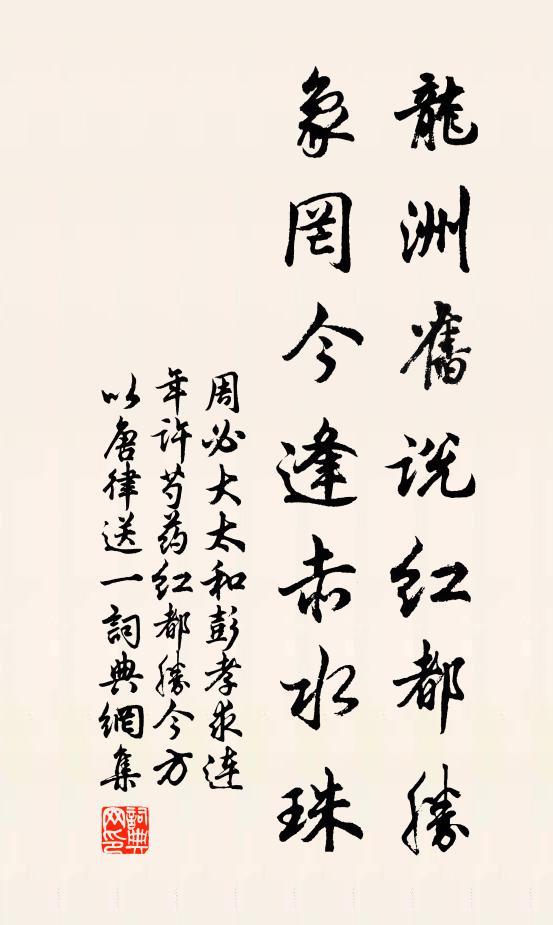 龍洲舊说红都勝
象罔今逢赤水珠
周必大太和彭孝求连
年许芍药红都勝今方
以唐律送一詞典網集
詞典网印